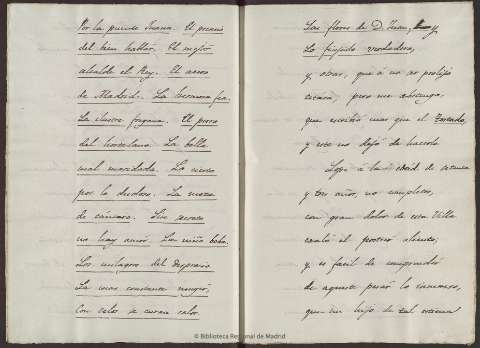 Por la puente Juana. El premio
del bien hablar. El mejor
alcalde el Rey. El acero
de Madrid. La hermosa fea.
La ilustre fregona. El perro
del hortelano. La bella
mal maridada. La
por la dudosa. La moza
de cántaro. Sin secreto
no hay amor. La niña boba.
Los milagros del desprecio
La mas constante muger,
Con celos
Las flores de D. Juan,
Lo fingido verdadero,
y otras, que á no ser prolijo
pero me
que escribió mas que el Tostado,
y este no dejó de hacerlo
Lope á la edad de setenta
y tres años, no cumplidos,
con gran dolor de esta Villa
exaló el postrer aliento;
y es facil de comprender
de aqueste pesar lo inmenso,
que un hijo de tal
© Biblioteca Regional de Madrid